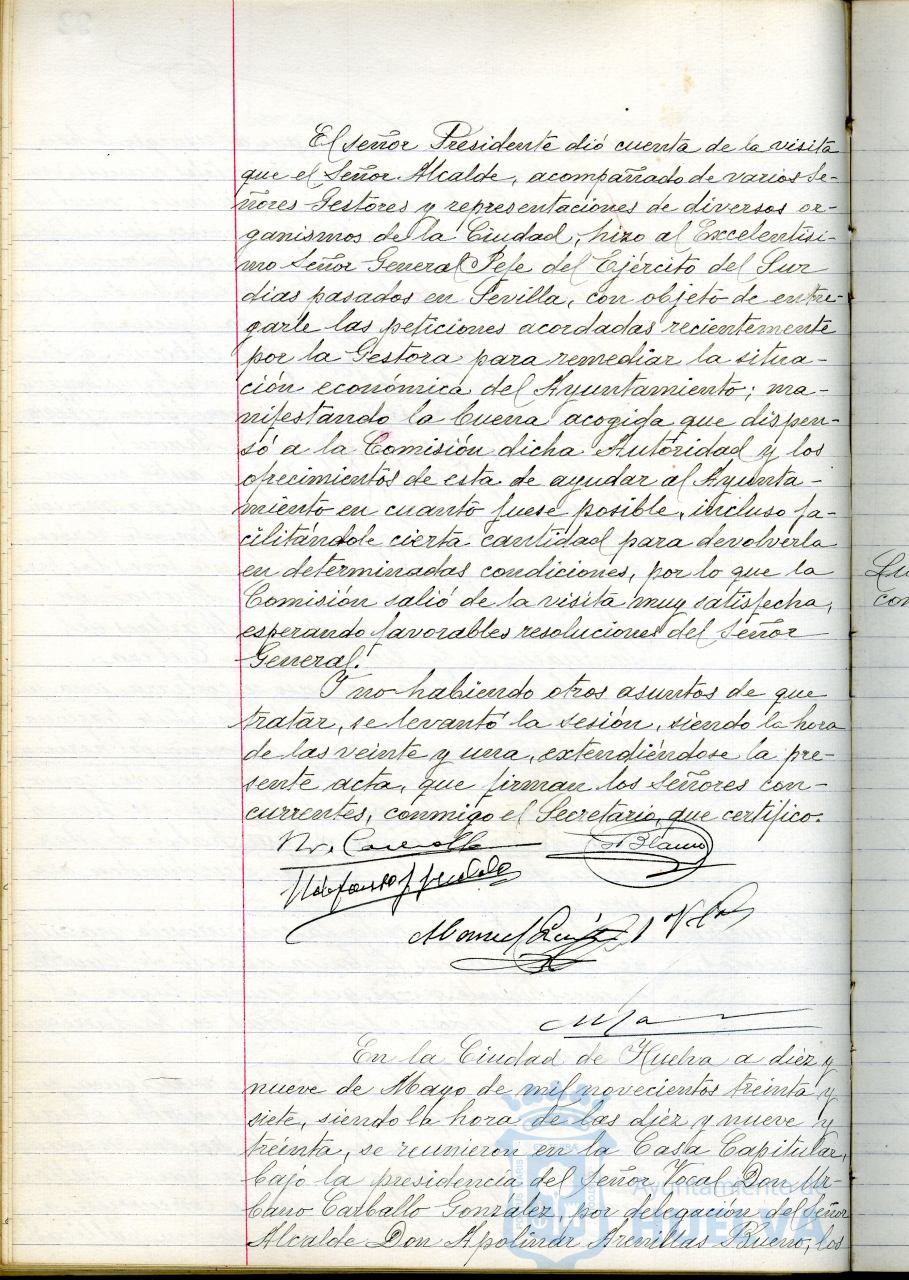 El señor Presidente dió cuenta de la visita
que el Señor Alcalde, acompañado de varios Se-
ñores Gestores y representaciones de diversos or-
ganismos de la Ciudad, hizo al Excelentísi-
mo Señor General Jefe del Ejército del Sur
días pasados en Sevilla, con objeto de entre-
garle las peticiones acordadas recientemente
por la Gestora para remediar la situa-
ción económica del Ayuntamiento; ma-
nifestando la buena acogida que dispen-
só a la Comisión dicha Autoridad y los
ofrecimientos de esta de ayudar al Ayunta-
miento en cuanto fuese posible, incluso fa-
cilitándole cierta cantidad para devolverla
en determinadas condiciones, por lo que la
Comisión salió de la visita muy satisfecha,
esperando favorables resoluciones del Señor
General.
Y no habiendo otros asuntos de que
tratar, se levantó la sesión, siendo la hora
de las veinte y una, extendiéndose la pre-
sente acta, que firman los Señores con-
currentes, conmigo el Secretario, que certifico.
Blanco
Manuel
En la Ciudad de Huelva a diez y
nueve de Mayo de mil novecientos treinta y
siete, siendo la hora de las diez y nueve y
treinta, se reunieron en la Casa Capitular,
bajo la presidencia del Señor Vocal Don Ur-
bano Carballo González, por delegación del Señor
Alcalde Don Apolinar Arenillas Bueno, los
Ayuntamiento de
HUELVA